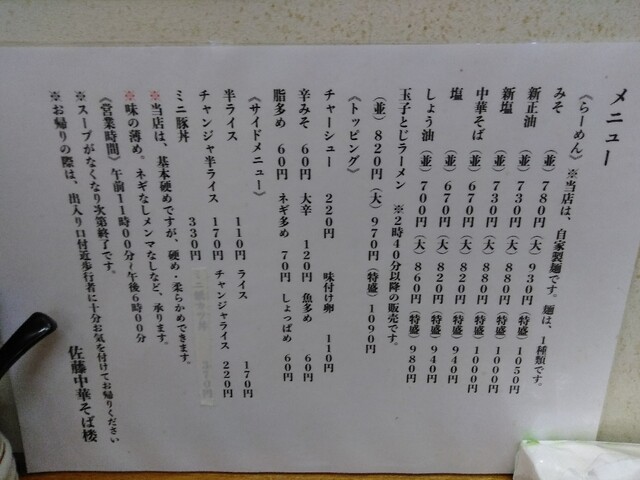 メニュー
《らーめん》※当店は、自家製麺です。麺は、1種類です。
みそ (並) 780円 (大) 930円 (特盛) 1050円
新正油 (並) 730円 (大) 880円 (特盛) 1000円
新塩 (並) 730円 (大) 880円 (特盛) 1000円
中華そば (並) 670円 (大) 820円 (特盛) 940円
塩 (並) 670円 (大) 820円 (特盛) 940円
しょう油 (並) 700円 (大) 860円 (特盛) 980円
玉子とじラーメン ※2時40分以降の販売です。
(並) 820円 (大) 970円 (特盛) 1090円
《トッピング》
チャーシュー 220円 味付け卵 110円
辛みそ 60円 大辛 120円 魚多め 60円
脂多め 60円 ネギ多め 70円 しょっぱめ 60円
《サイドメニュー》
半ライス 110円 ライス 170円
チャンジャ半ライス 170円 チャンジャライス 220円
ミニ豚丼 330円
※当店は、基本硬めですが、硬め・柔らかめできます。
※味の薄め。ネギなしメンマなしなど、承ります。
《営業時間》午前11時00分~午後6時00分
※スープがなくなり次第終了です。
※お帰りの際は、出入り口付近歩行者に十分お気を付けてお帰りください
佐藤中華そば楼